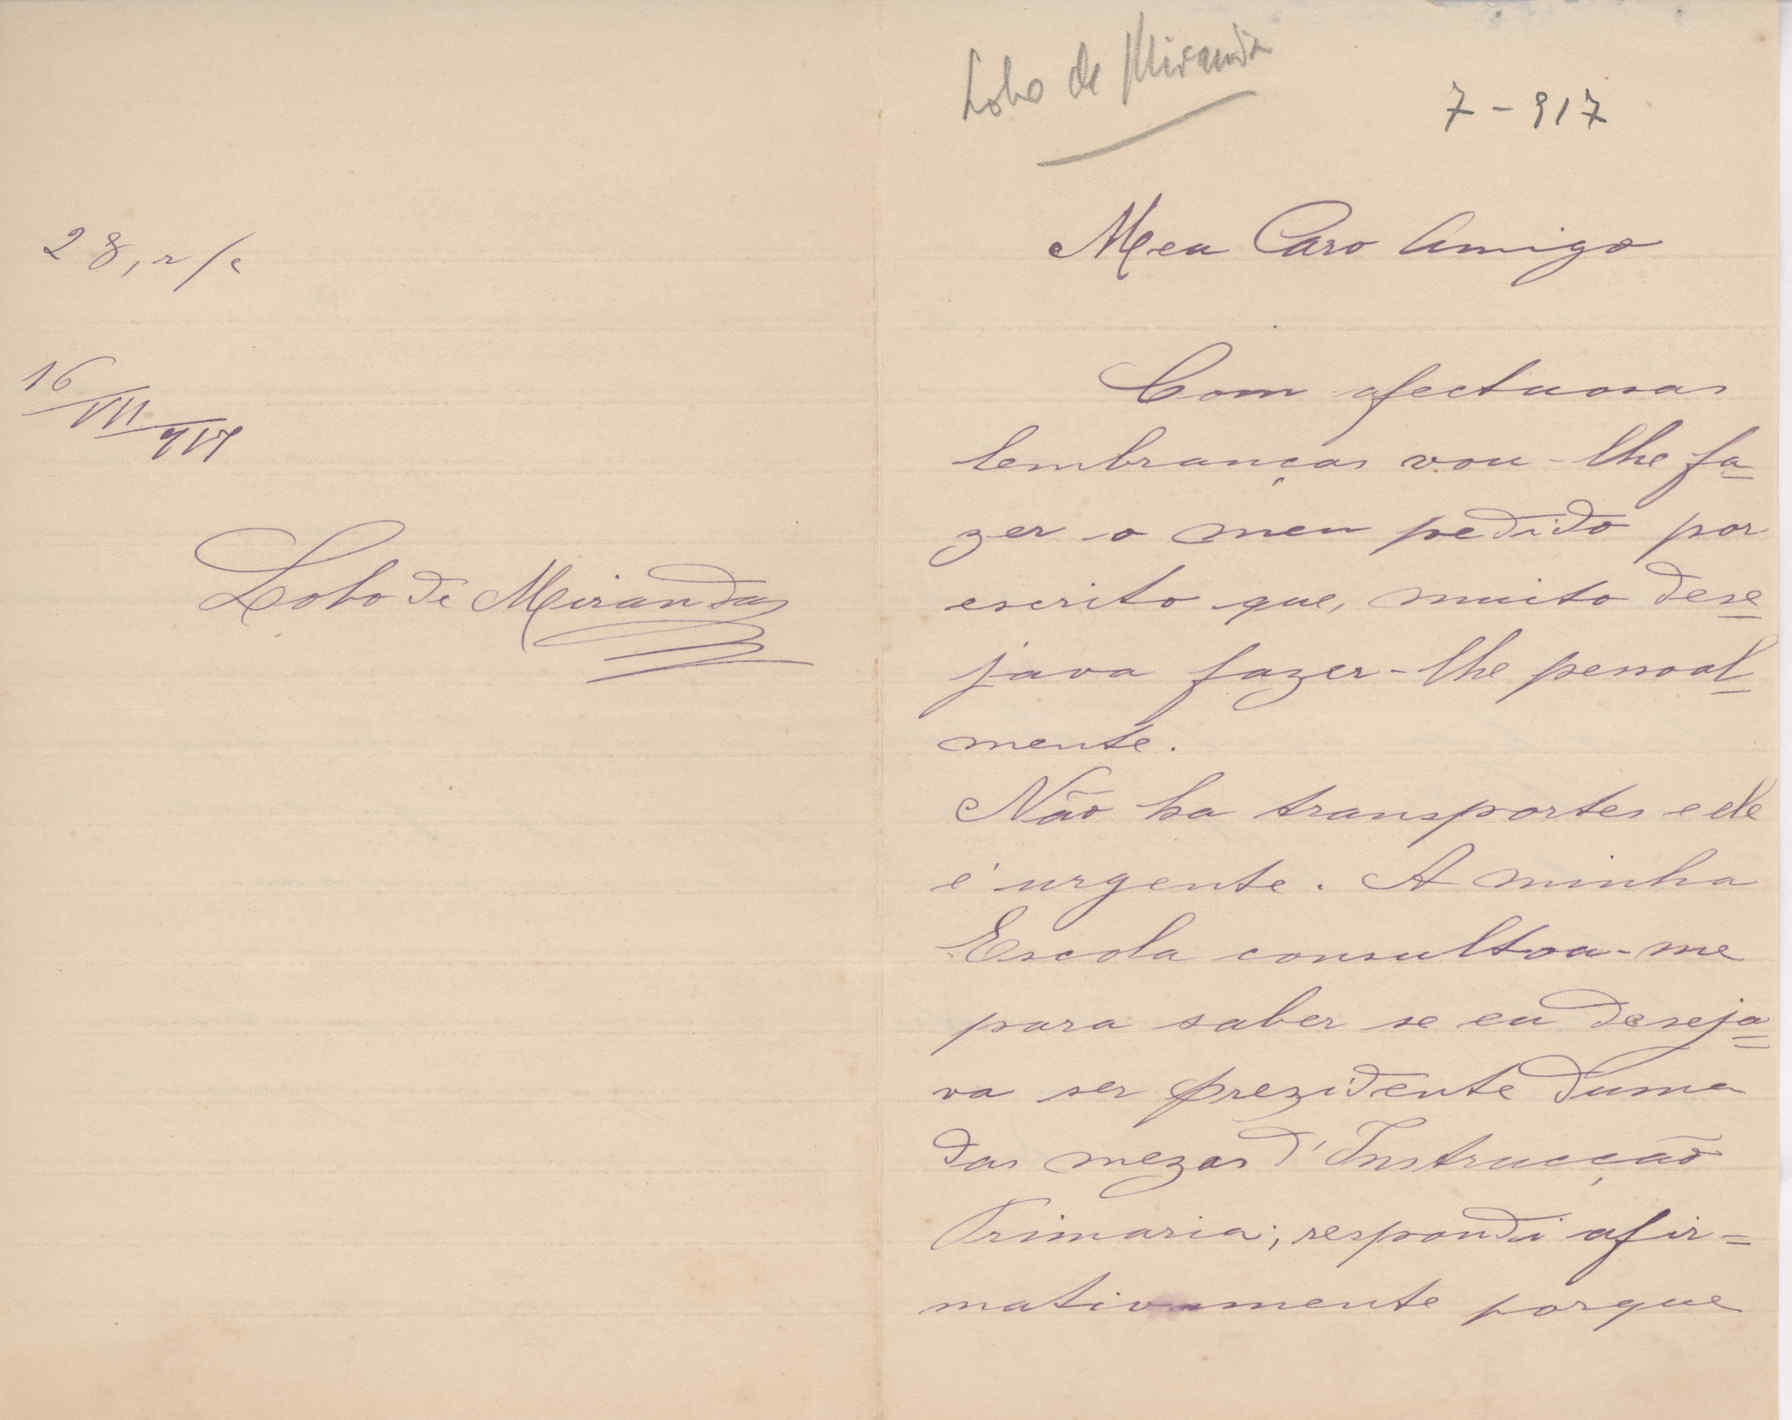 28, r/c
16/VII/917
Lobo de Miranda
Lobo de Miranda
7-917
Meu Caro Amigo
Com afectuosas
lembranças vou-lhe fa-
zer o meu pedido por
escrito que, muito dese
java fazer-lhe pessoal-
mente.
Não ha transportes e ele
é urgente. A minha
Escola consultou-me
para saber se eu deseja=
va ser prezidente duma
das mezas d'Instrucção
Primaria; respondi afir=
mativamente porque